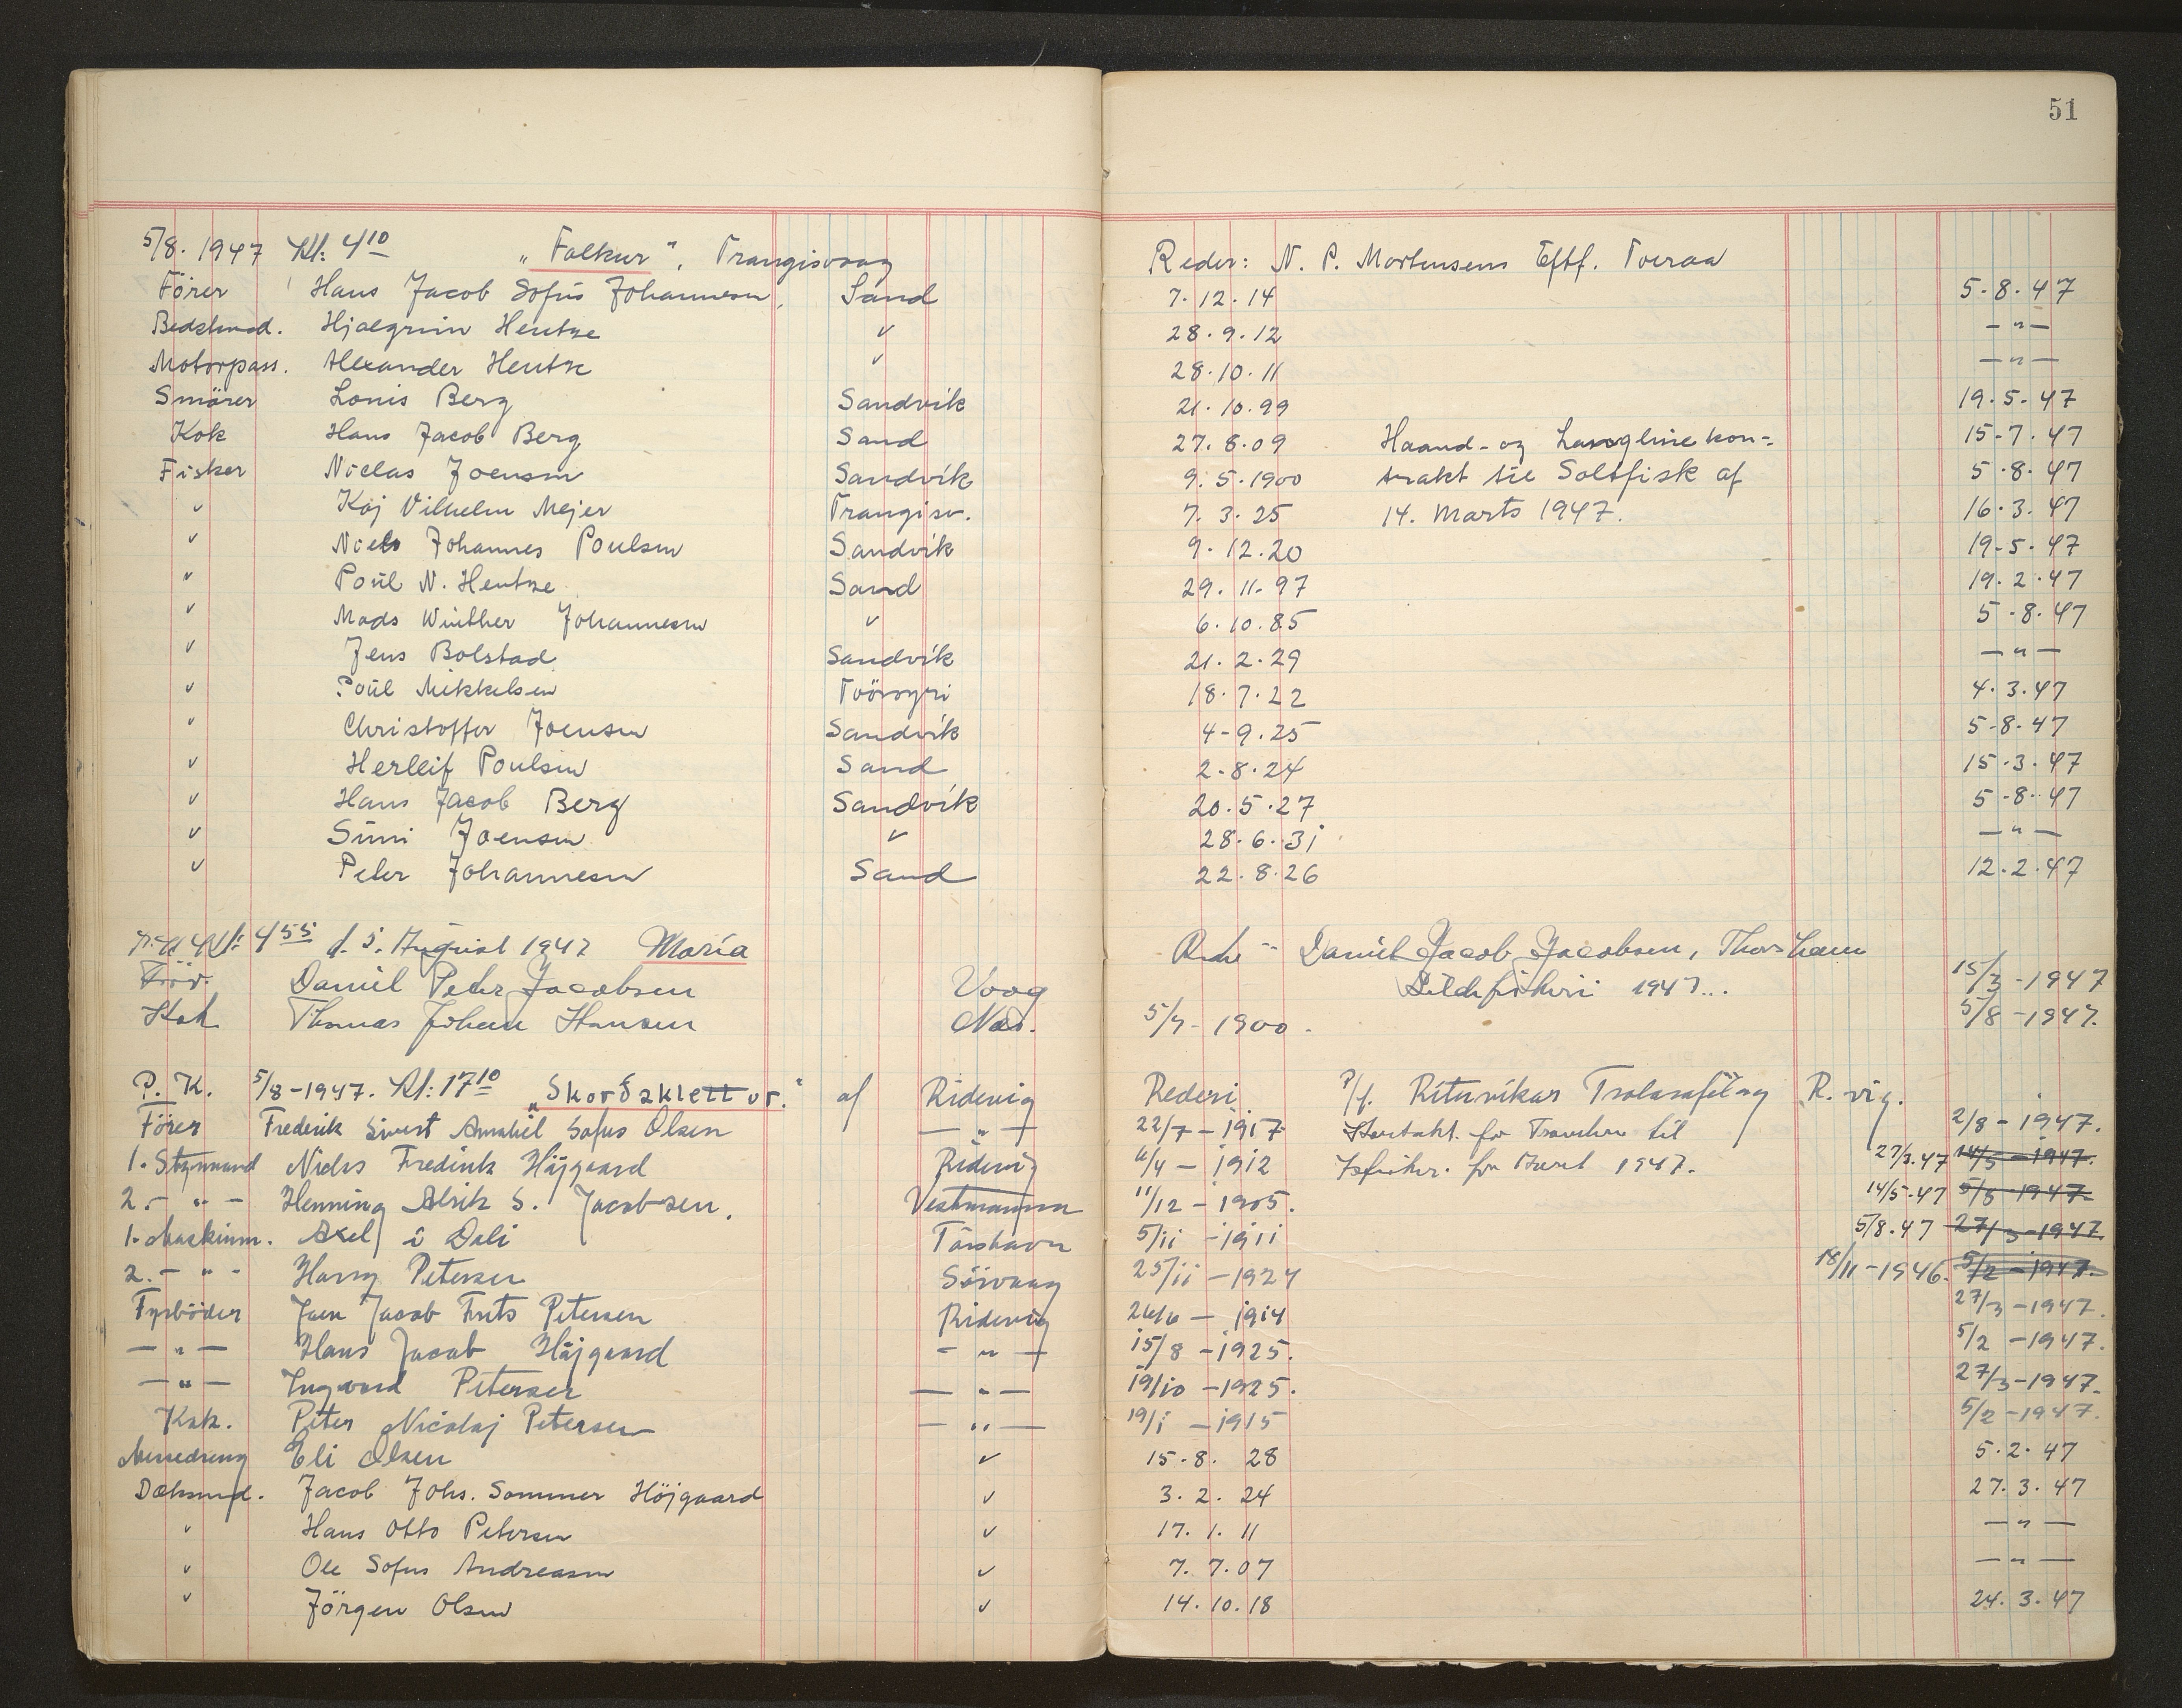 51
5/8. 1947 Kl: 410 "Falkur", Trangisvaag Reder: N. P. Mortensens Eftf. Tveraa
Förer Hans Jacob Sofus Johannesen, Sand 7.12.14 5-8-47
Bedstmd. Hjalgrim Hentze " 28.9.12 —"—
Motorpass. Alexander Hentze " 28.10.11 —"—
Smörer Louis Berg Sandvík 21.10.99 19.5.47
Kok Hans Jacob Berg Sand 27.8.09 Haand- og Langlinekon- 15-7.47
Fisker Niclas Joensen Sandvík 9.5.1900 trakt til Saltfisk af 5.8.47
" Kaj Vilhelm Mejer Trangisv. 7.3.25 14. Marts 1947. 16.3.47
" Niels Johannes Poulsen Sandvík 9.12.20 19-5.47
" Poul N. Hentze Sand 29.11.97 19.2.47
" Mads Winther Johannesen " 6.10.85 5-8.47
" Jens Bolstad Sandvík 21.2.29 —"—
" Poul Mikkelsen Tvöroyri 18.7.22 4.3.47
" Christoffer Joensen Sandvík 4-9.25 5-8-47
" Herleif Poulsen Sand 2-8.24 15.3.47
" Hans Jacob Berg Sandvík 20.5.27 5-8-47
" Simi Joensen " 28.6.31 —"—
" Peter Johannesen Sand 22.8.26 12.2.47
Kl: 455 d. 5. August 1947 Maria Daniel Jacob Jacobsen, Thorshavn
Daniel Peter Jacobsen Vaag Sildefiskeri 1947. 15/3-1947
Kok Thomas Johan Hansen Næs. 1900. 5/8-1947.
P. K. 5/8-1947. Kl: 1710 "Skorðaklettur." af Ridevig Rederi P/f. Rituvíkar Trolarafélag R. vig.
Förer Frederik Sivert Sofus Olsen —"— 22/7-1917 Kontakt. for Trawlere til 2/8-1947.
1. Styrmand Nicles Fredrik Højgaard Ridevig 1912 Isfisker. for Marts 1947. 27/3.47 14/5-1947.
2. -"- Henning Alrik S. Jacobsen. Vestmanna 11/12-1905. 14/5-47 5/8-1947.
1. Maskinm. Axel í Dali Tórshavn 5/11-1911 5/8.47 27/3-1947.
2. -"- Harry Petersen Sörvaag 25/11-1924 18/11-1946. 5/2-1947.
Fyrböder Jacob Frits Petersen Ridevig 1914 27/3-1947.
—"— Hans Jacob Højgaard —"— 15/8-1925. 5/2-1947.
—"— Ingvard Petersen —"— 19/10-1925. 27/3-1947.
Kok. Peter Nicolaj Petersen —"— 19/1-1915 5/2-1947.
Messedreng Eli Olsen " 15-8. 28 5.2.47
Dæksmd. Jacob Johs. Sommer Höjgaard " 3.2.24 27.3.47
" Hans Otto Petersen " 17.1.11 —"—
" Ole Sofus Andreasen " 7.7.07 —"—
" Jörgen Olsen " 14.10.18 24.3.47